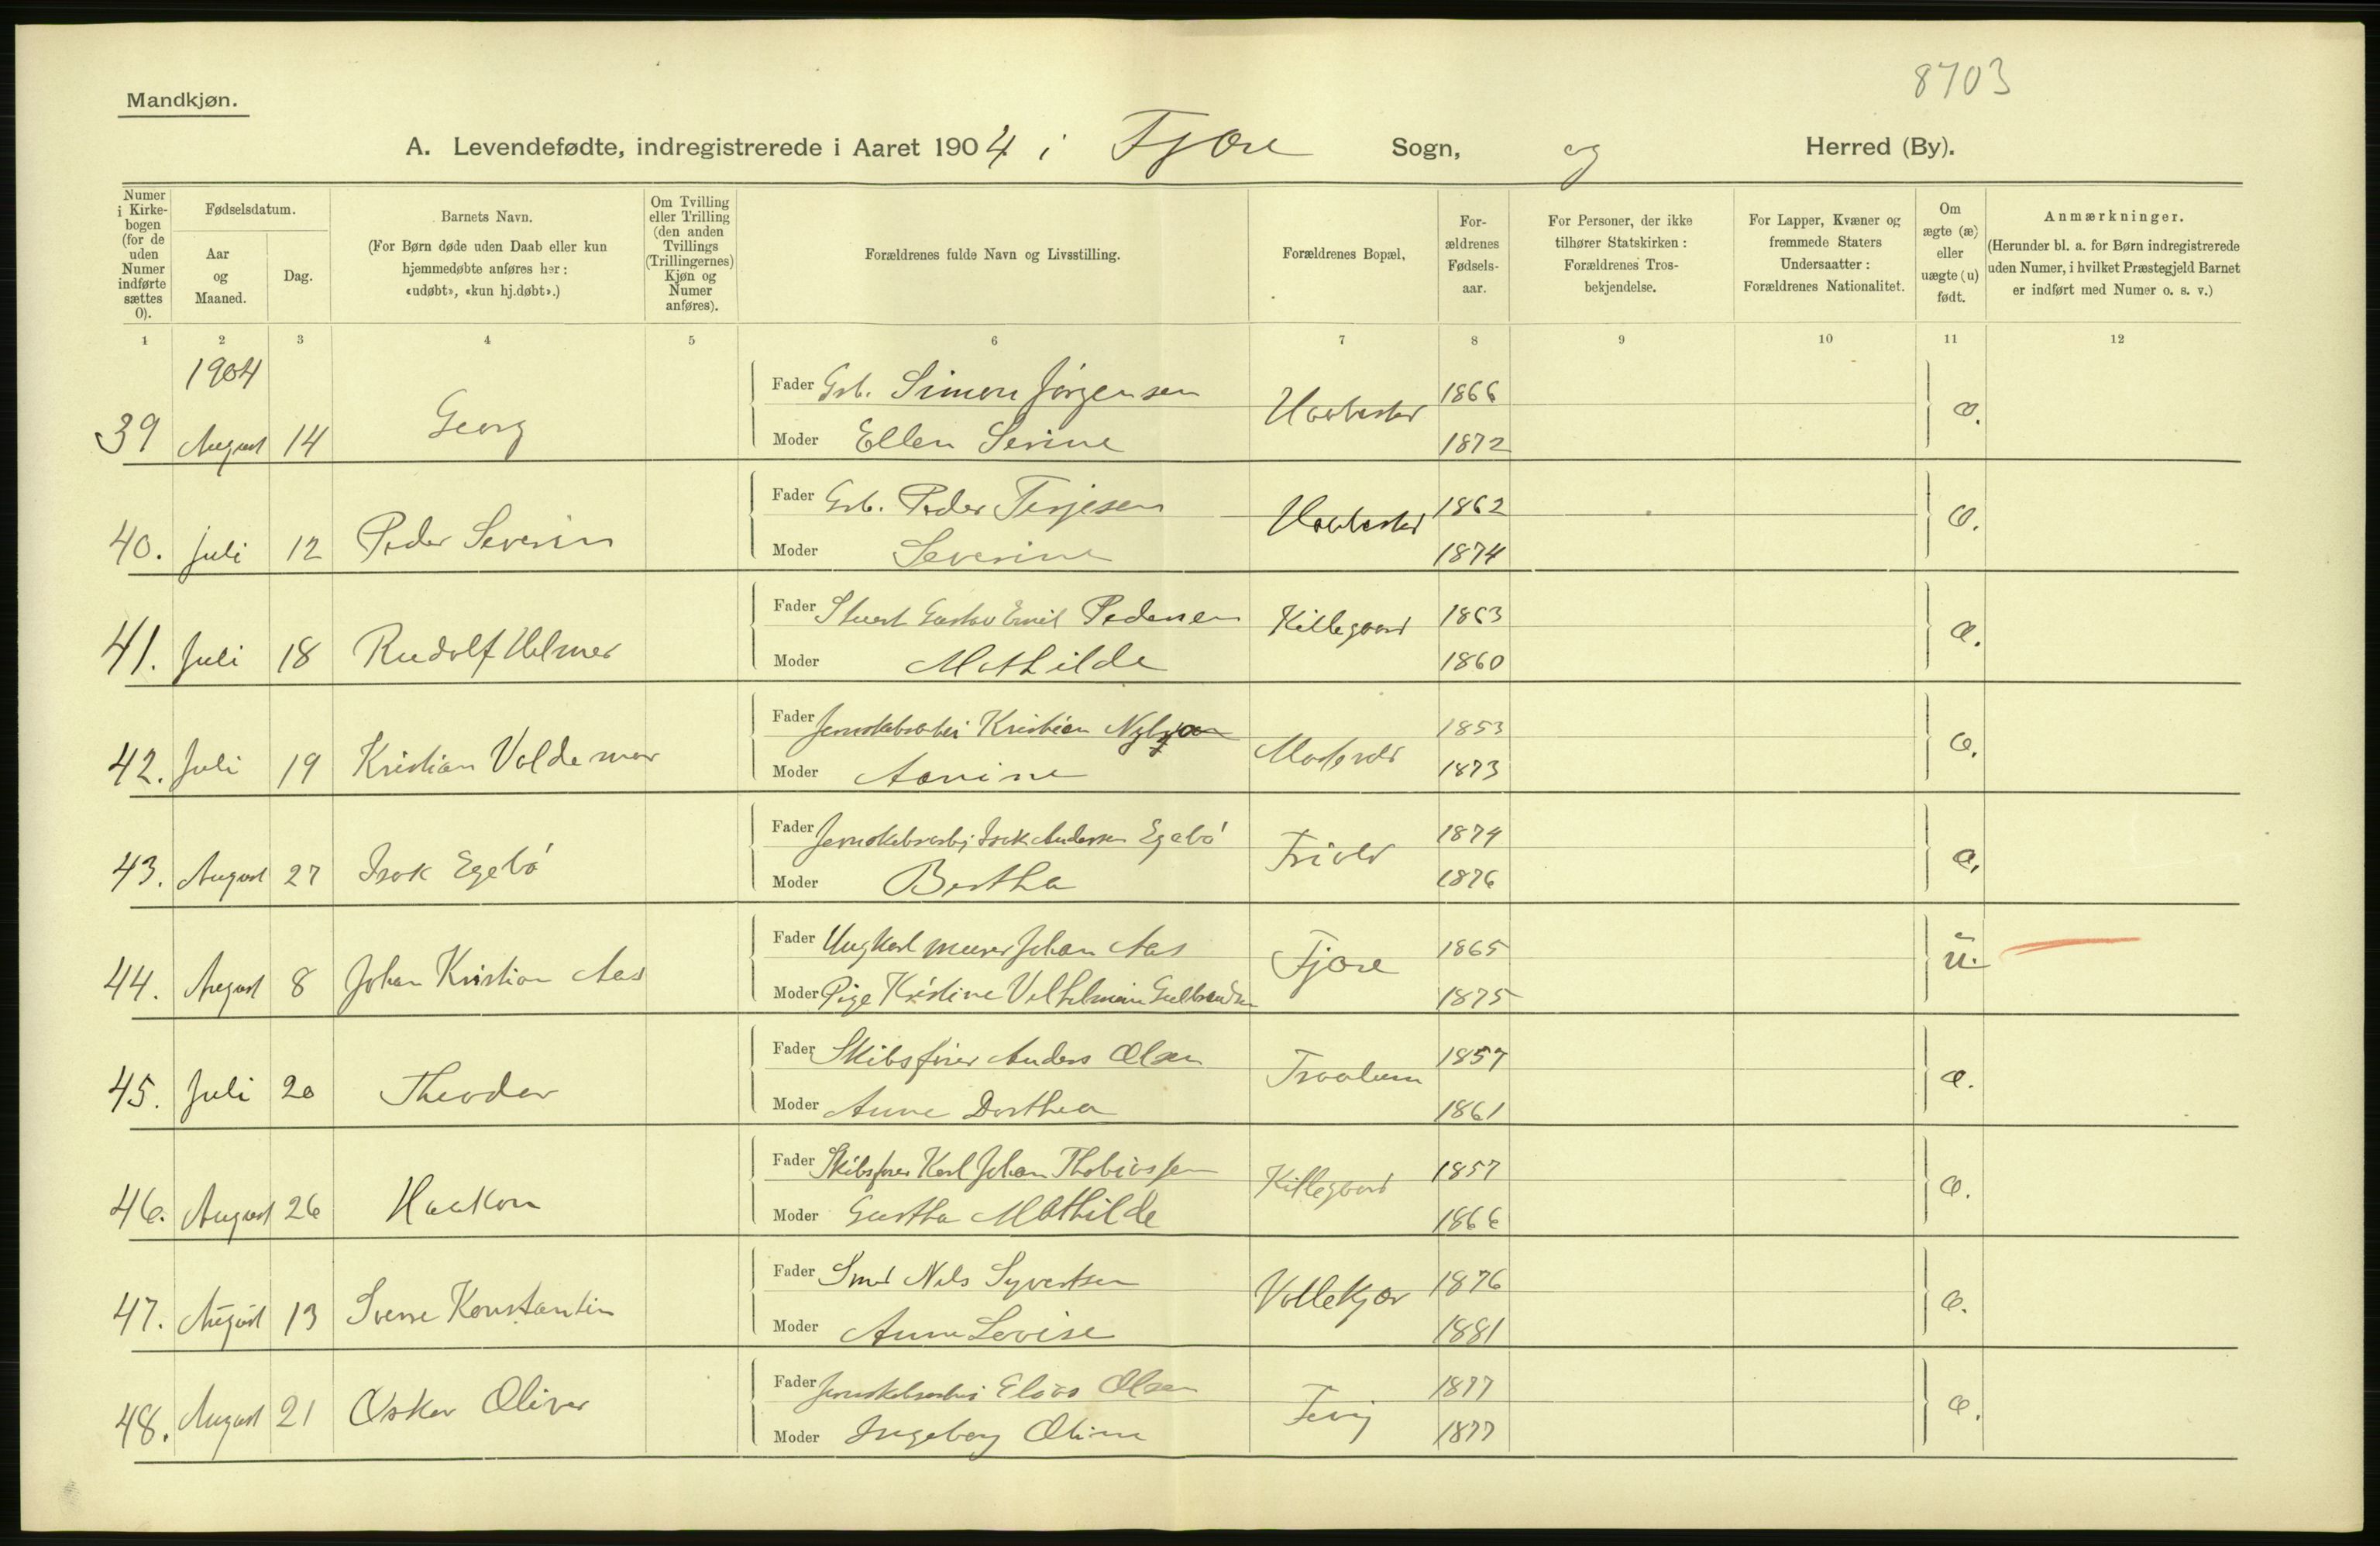 8703
Mandkjøn.
A. Levendefødte, indregistrerede i Aaret 1904 i Fjære Sogn, og Herred (By).
Numer i Kirkebogen (for de uden Numer indførte sættes 0).
Fødselsdatum.
Aar og Maaned.
Dag.
Barnets Navn.
(For Børn døde uden Daab eller kun hjemmedøbte anføres her: «udøbt», «kun hj.døbt».)
Om Tvilling eller Trilling (den anden Tvillings (Trillingernes) Kjøn og Numer anføres).
Forældrenes fulde Navn og Livsstilling.
Forældrenes Bopæl,
For-ældrenes Fødsels-aar.
For Personer, der ikke tilhører Statskirken: Forældrenes Tros-bekjendelse.
For Lapper, Kvæner og fremmede Staters Undersaatter: Forældrenes Nationalitet.
Om ægte (æ) eller uægte (u) født.
Anmærkninger.
(Herunder bl. a. for Børn indregistrerede uden Numer, i hvilket Præstegjeld Barnet er indført med Numer o. s. v.)
1 2 3 4 5 6 7 8 9 10 11 12
1904
Fader Grb. Simon Jörgensen 1866
39 August 14 Georg æ.
Moder Ellen Serine 1872
Fader Grb. Peder Terjesen 1862
40. Juli 12 Peder Severin æ.
Moder Severine 1874
Fader Stuert Gustav Emil Pedersen Killegaard 1863
41. Juli 18 Rudolf Helmer æ.
Moder Mathilde 1860
Fader Jernskibsarbei Kristian 1853
42. Juli 19 Kristian Valdemar æ.
Moder 1873
Fader Jernskibsarbj Isak Andersen Egebö 1874
43. August 27 Isak Egebö Frivold æ.
Moder Bertha 1876
Fader Ungkarl murer Johan Aas 1865
44. August 8 Johan Kristian Aas Fjære u.
Moder Pige Kristine Vilhelmine Gulbrandsen 1875
Fader Skibsfører Anders Olsen 1857
45. Juli 20 Theodor æ.
Moder Anne Dorthea 1861
Fader Skibsfører Karl Johan Thobiassen Killegaard 1857
46. August 26 Haakon æ.
Moder Mathilde 1866
Fader Smed Nils Syvertsen 1876
47. August 13 Sverre Konstantin Vollekjær æ.
Moder Anne Lovise 1881
Fader Jernskibsarbei Elias Olsen 1877
48. August 21 Oskar Oliver Fevig æ.
Moder Ingeborg Oline 1877